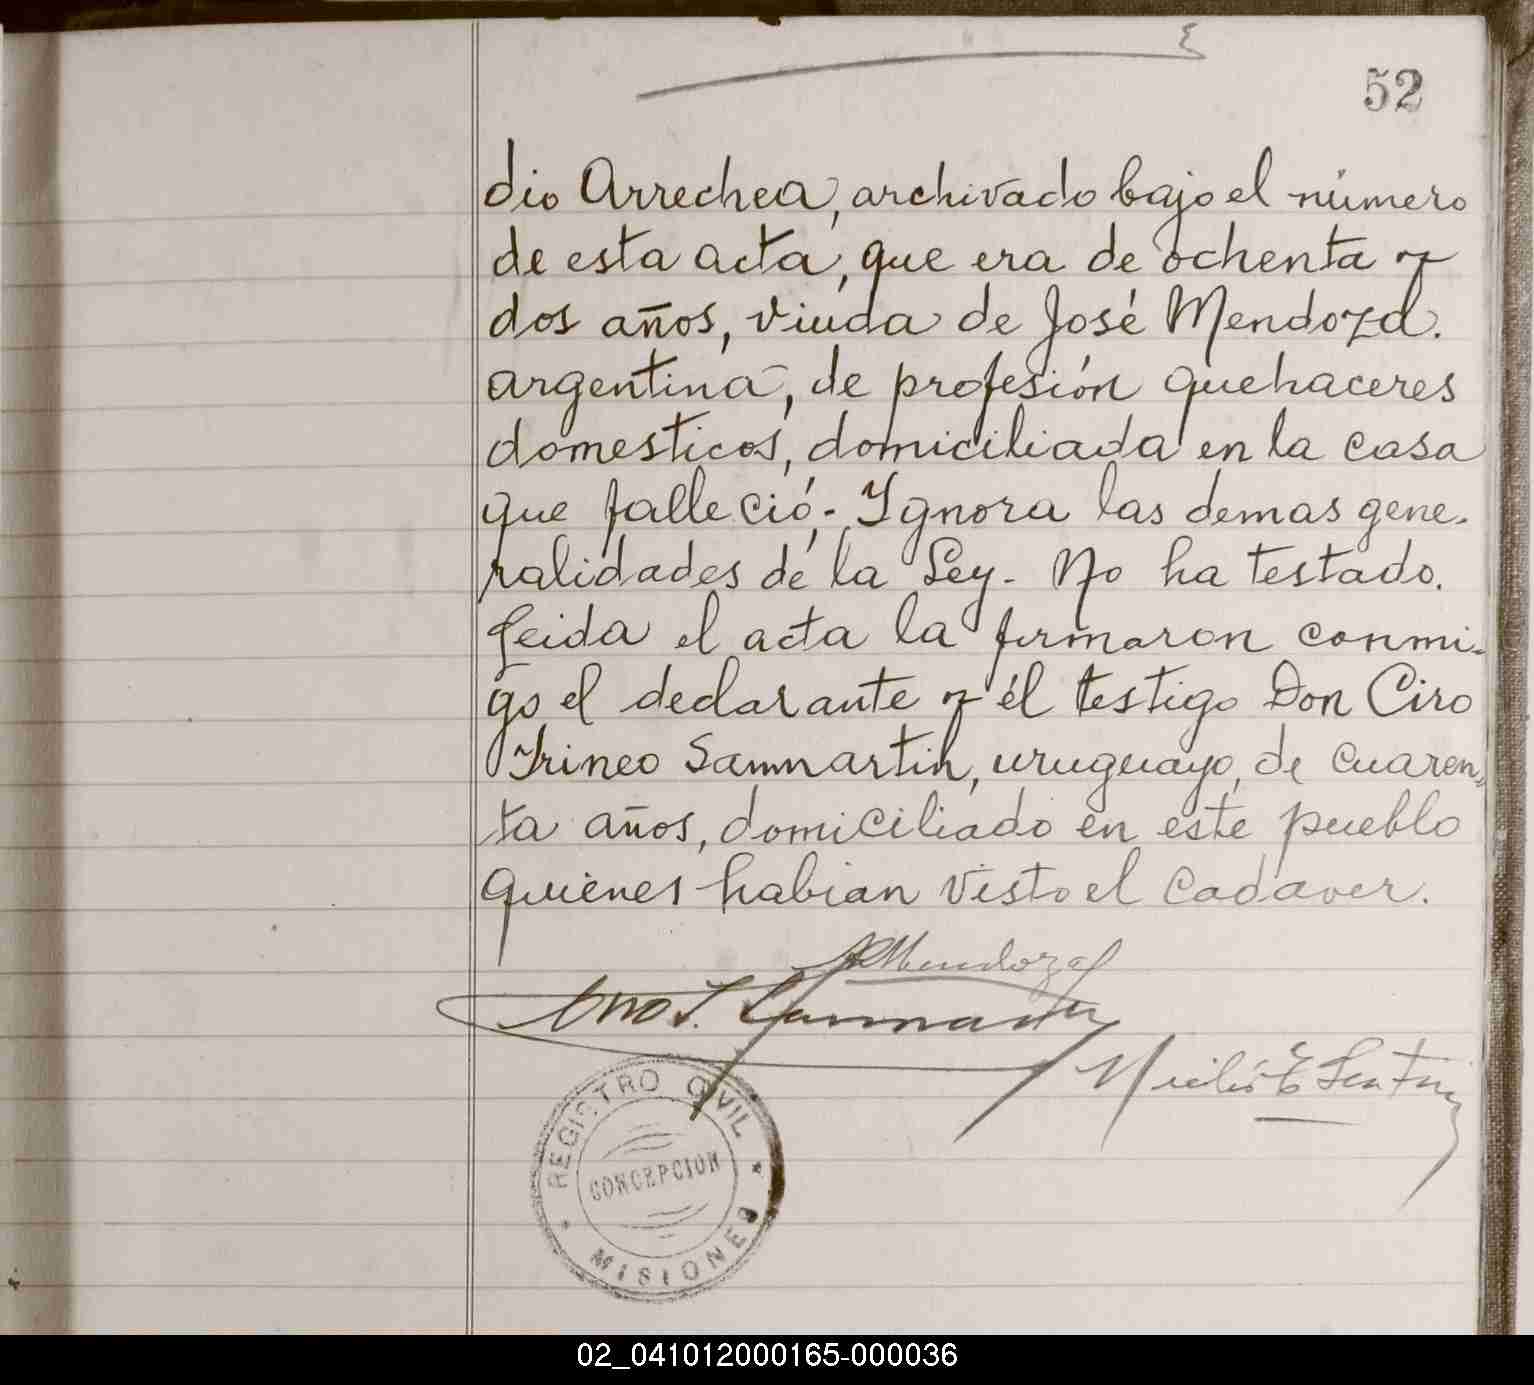 52
dio Arrechea, archivado bajo el número
de esta acta, que era de ochenta y
dos años, viuda de José Mendoza.
argentina, de profesión quehaceres
domesticos, domiciliada en la casa
que falleció.- Ignora las demas gene-
ralidades de la Ley.- No ha testado.
Leida el acta la firmaron conmi-
go el declarante y él testigo Don Ciro
Yrineo Sanmartin, uruguayo, de cuaren-
ta años, domiciliado en este pueblo
quienes habian visto el cadaver.
Mendoza
REGISTRO CIVIL
CONCEPCION
MISIONES
02_041012000165-000036